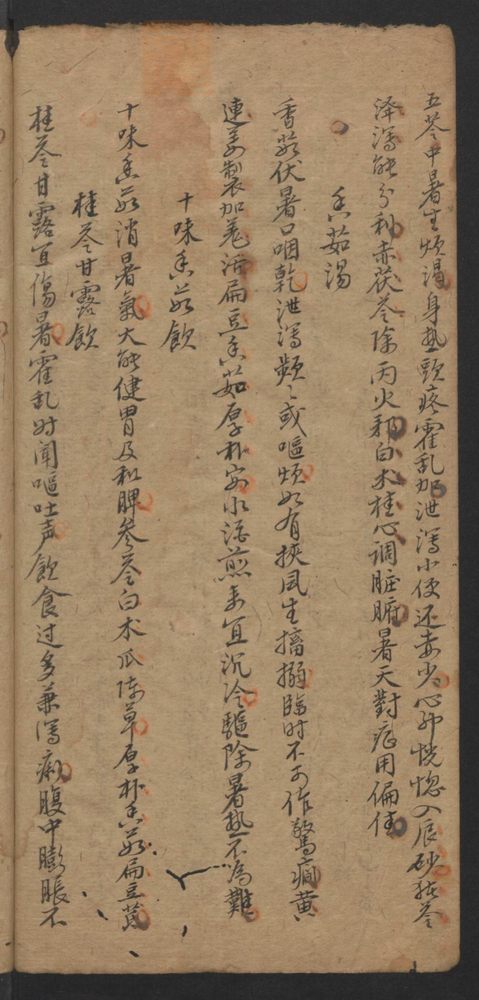 五苓中暑生煩渴身热頭疼霍乱加泄瀉小便还赤少心神恍惚入辰砂猪苓
泽瀉能分利赤茯苓除丙火邪白术桂心調脏腑暑天對症用偏佳
香茹湯
香茹伏暑口咽乾泄瀉頻〻或嘔煩如有挾風生搐搦臨时不可作驚癇黄
連姜製加羌活扁豆香茹厚朴安水酒煎来宜沉冷驅除暑热不為難
十味香茹飲
十味香茹消暑氣大能健胃及和脾參苓白术瓜陈草厚朴香茹扁豆芪
桂苓甘露飲
桂苓甘露宜傷暑霍乱时闻嘔吐声飲食过多兼瀉痢腹中膨脹不